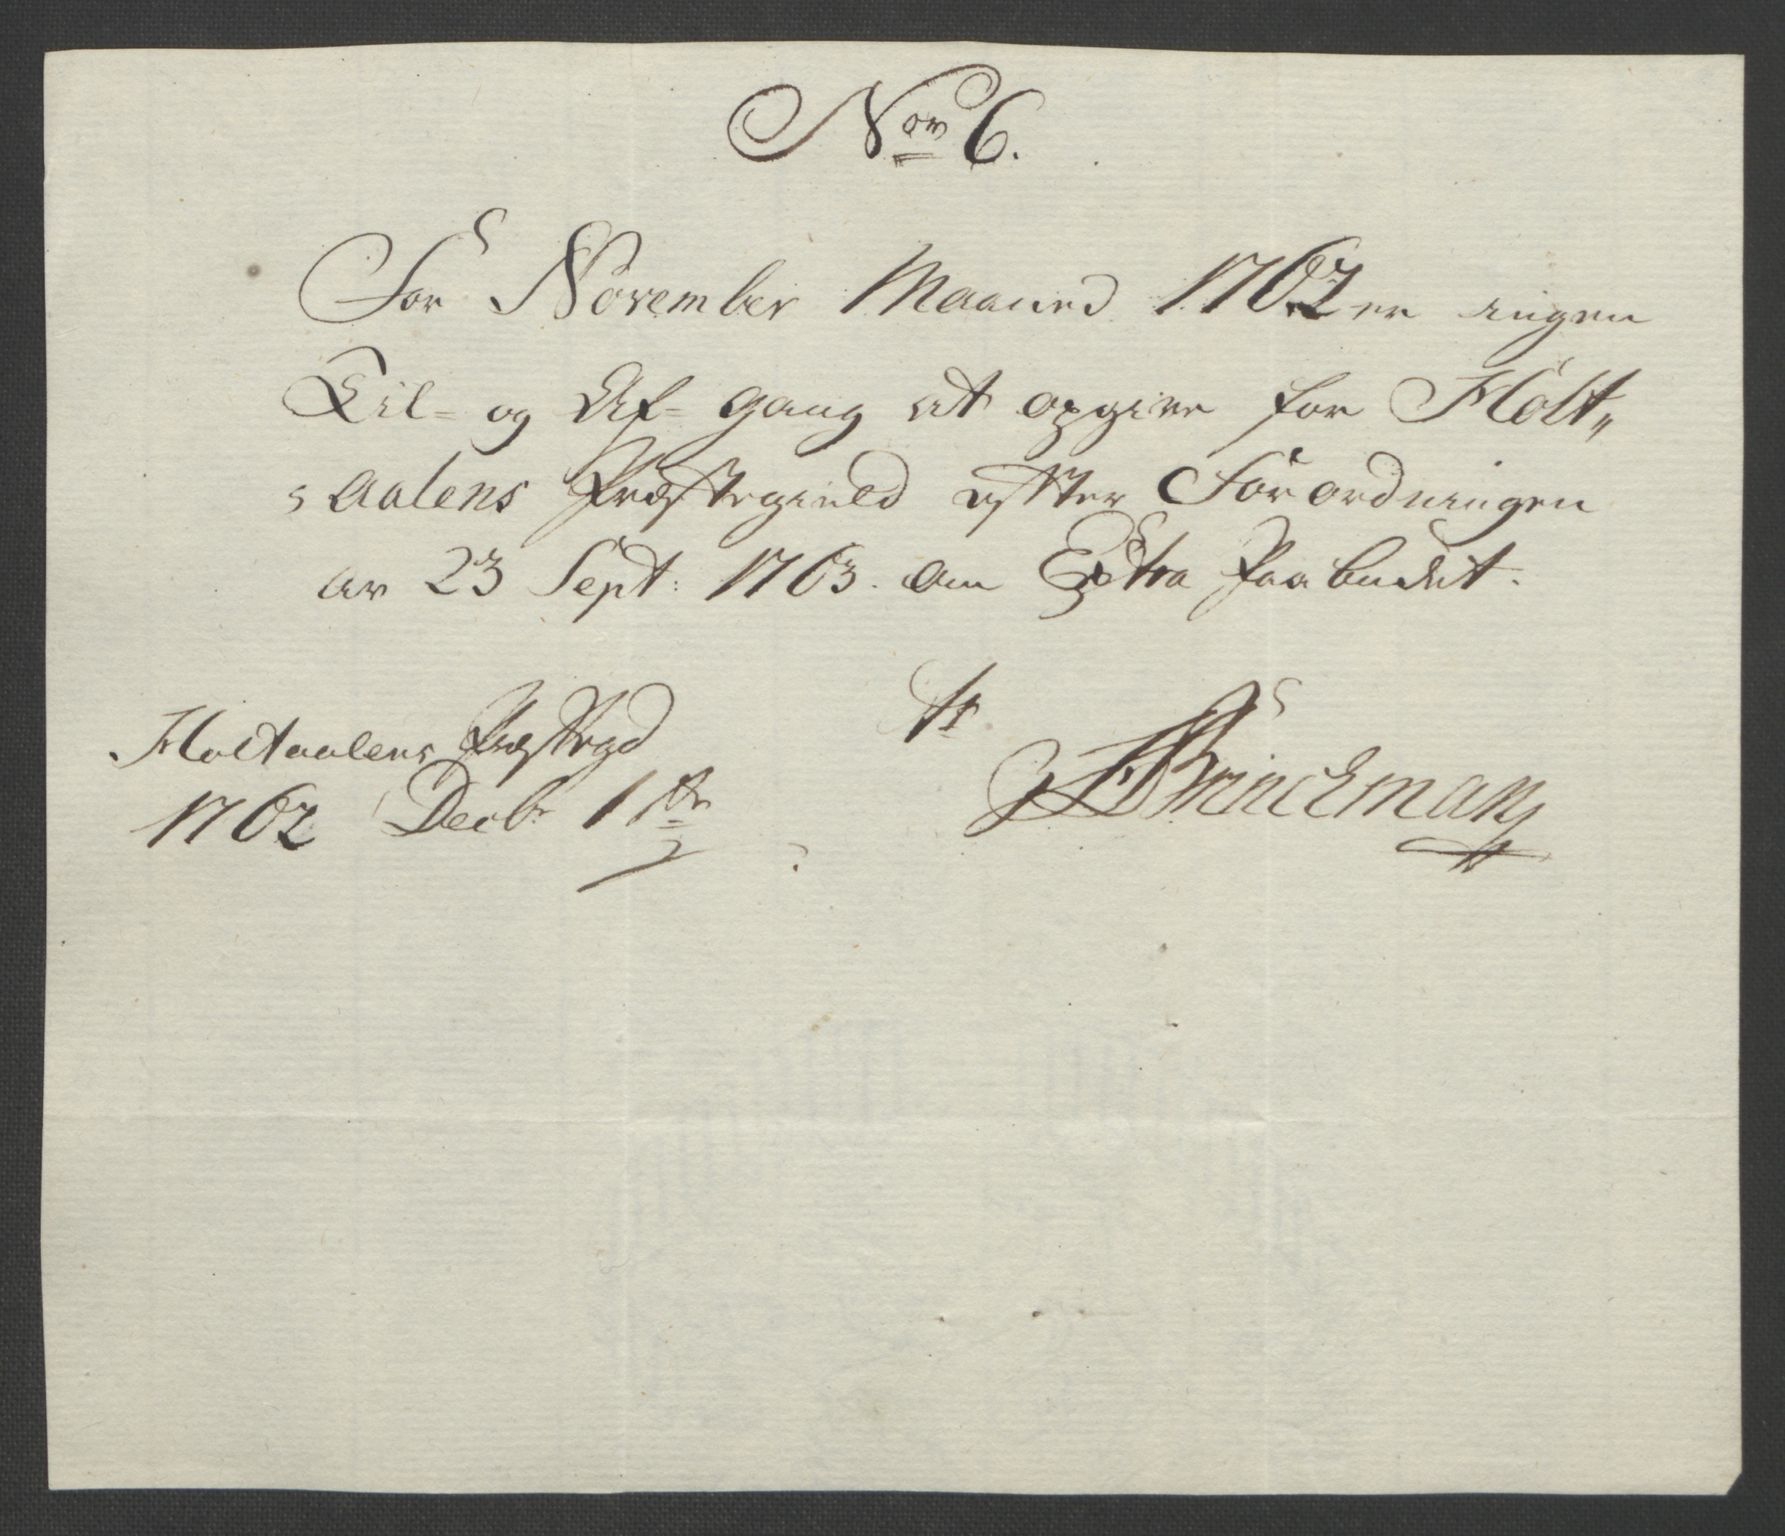 No 6.
For November Maaned 1762 er ingen
Til- og Af- gang at opgive for Holt„
„aalens Præstegield efter Forordningen
av 23 Sept: 1763. om Extra Paabudet.
Holtaalens Præstegd
1762 Decbr 1ste
Brinchman